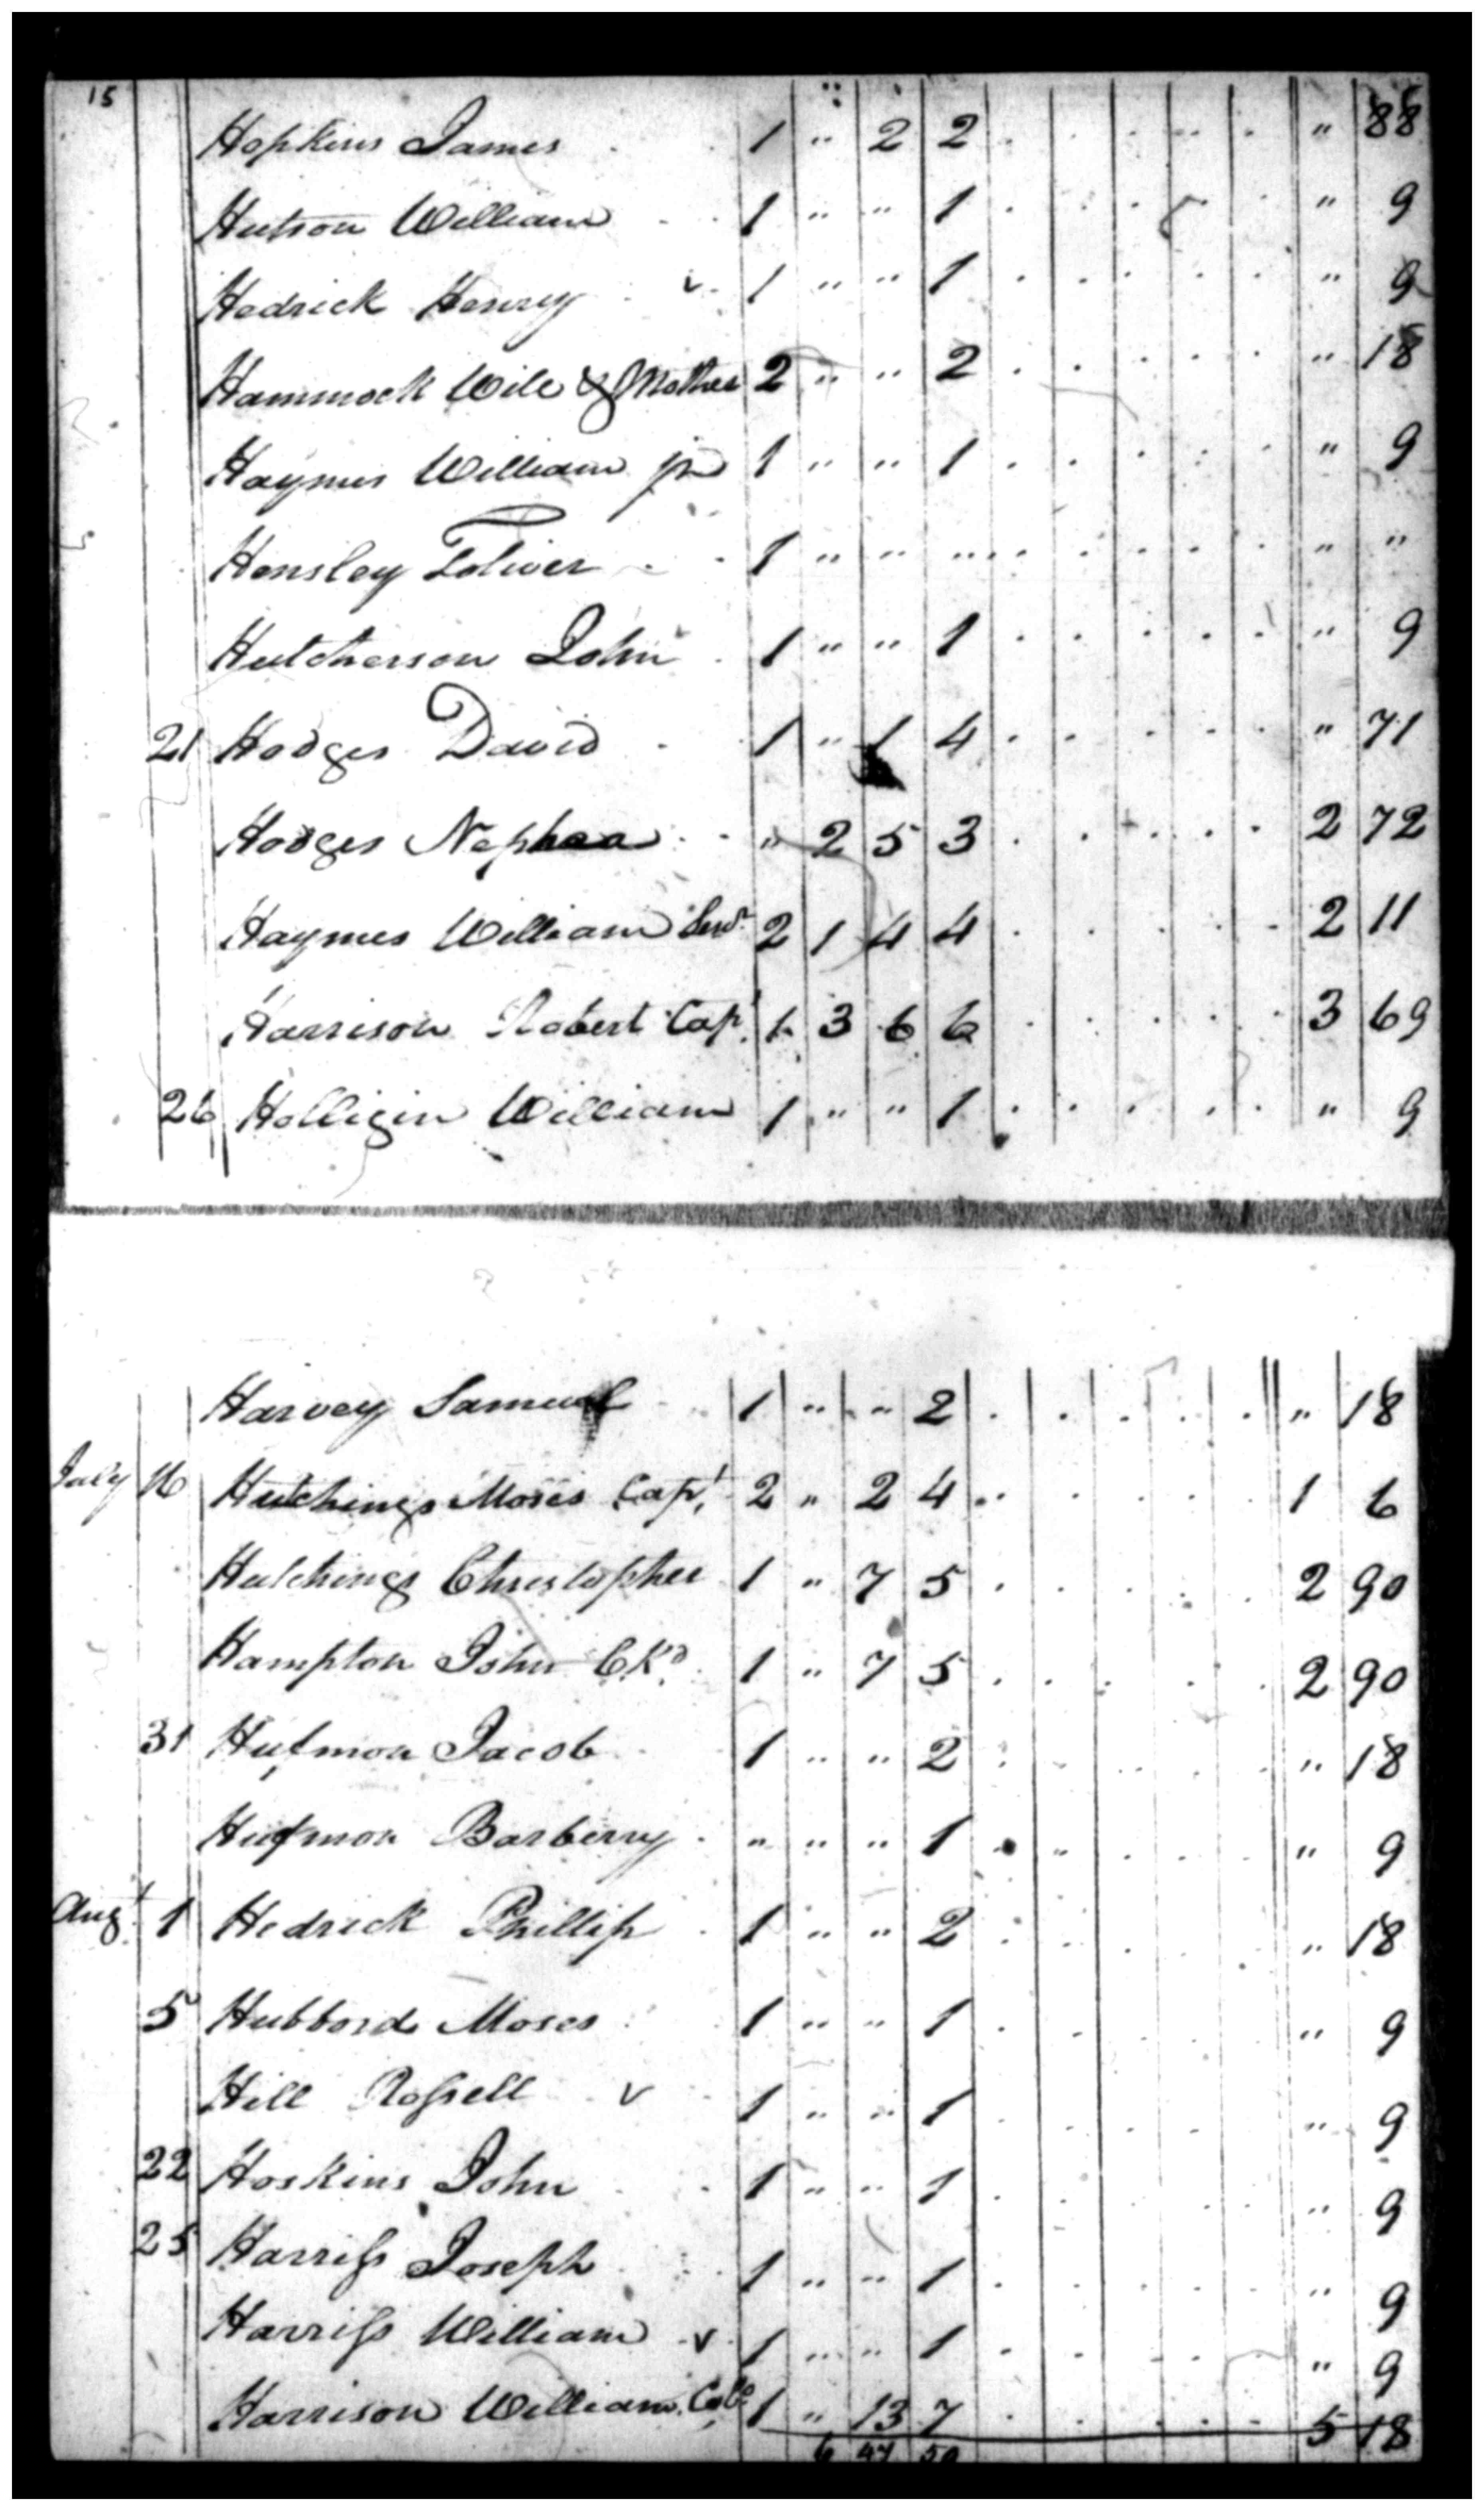 15
Hopkins James 1 " 2 2 . . . . . " 88
Hutson William 1 " " 1 . . . . . " 9
Hedrick Henry v 1 " " 1 . . . . . " 9
Hammock Wile & Mother 2 " " 2 . . . . . " 18
Haymes William jr 1 " " 1 . . . . . " 9
Hensley Toliver 1 " " " . . . . . " "
Hutcherson John 1 " " 1 . . . . . " 9
21 Hodges David 1 " 1 4 . . . . . " 71
Hodges " 2 5 3 . . . . . 2 72
Haymes William Senr 2 1 4 4 . . . . . 2 11
Harrison Robert Capt. 1 3 6 6 . . . . . 3 69
26 Holligin William 1 " " 1 . . . . . " 9
Harvey Samuel 1 " " 2 . . . . . " 18
July 16 Hutchings Moses Capt. 2 " 2 4 . . . . . 1 6
Hutchings Christopher 1 " 7 5 . . . . . 2 90
Hampton John CKd. 1 " 7 5 . . . . . 2 90
31 Hufmon Jacob 1 " " 2 . . . . . " 18
Hufmon Barberry " " " 1 . . . . . " 9
Augt. 1 Hedrick Phillip 1 " " 2 . . . . . " 18
5 Hubbord Moses 1 " " 1 . . . . . " 9
Hill Rossell v 1 " " 1 . . . . . " 9
22 Hoskins John 1 " " 1 . . . . . " 9
25 Harriss Joseph 1 " " 1 . . . . . " 9
Harriss William v 1 " " 1 . . . . . " 9
Harrison William Colo 1 " 13 7 . . . . . 5 18
6 47 50